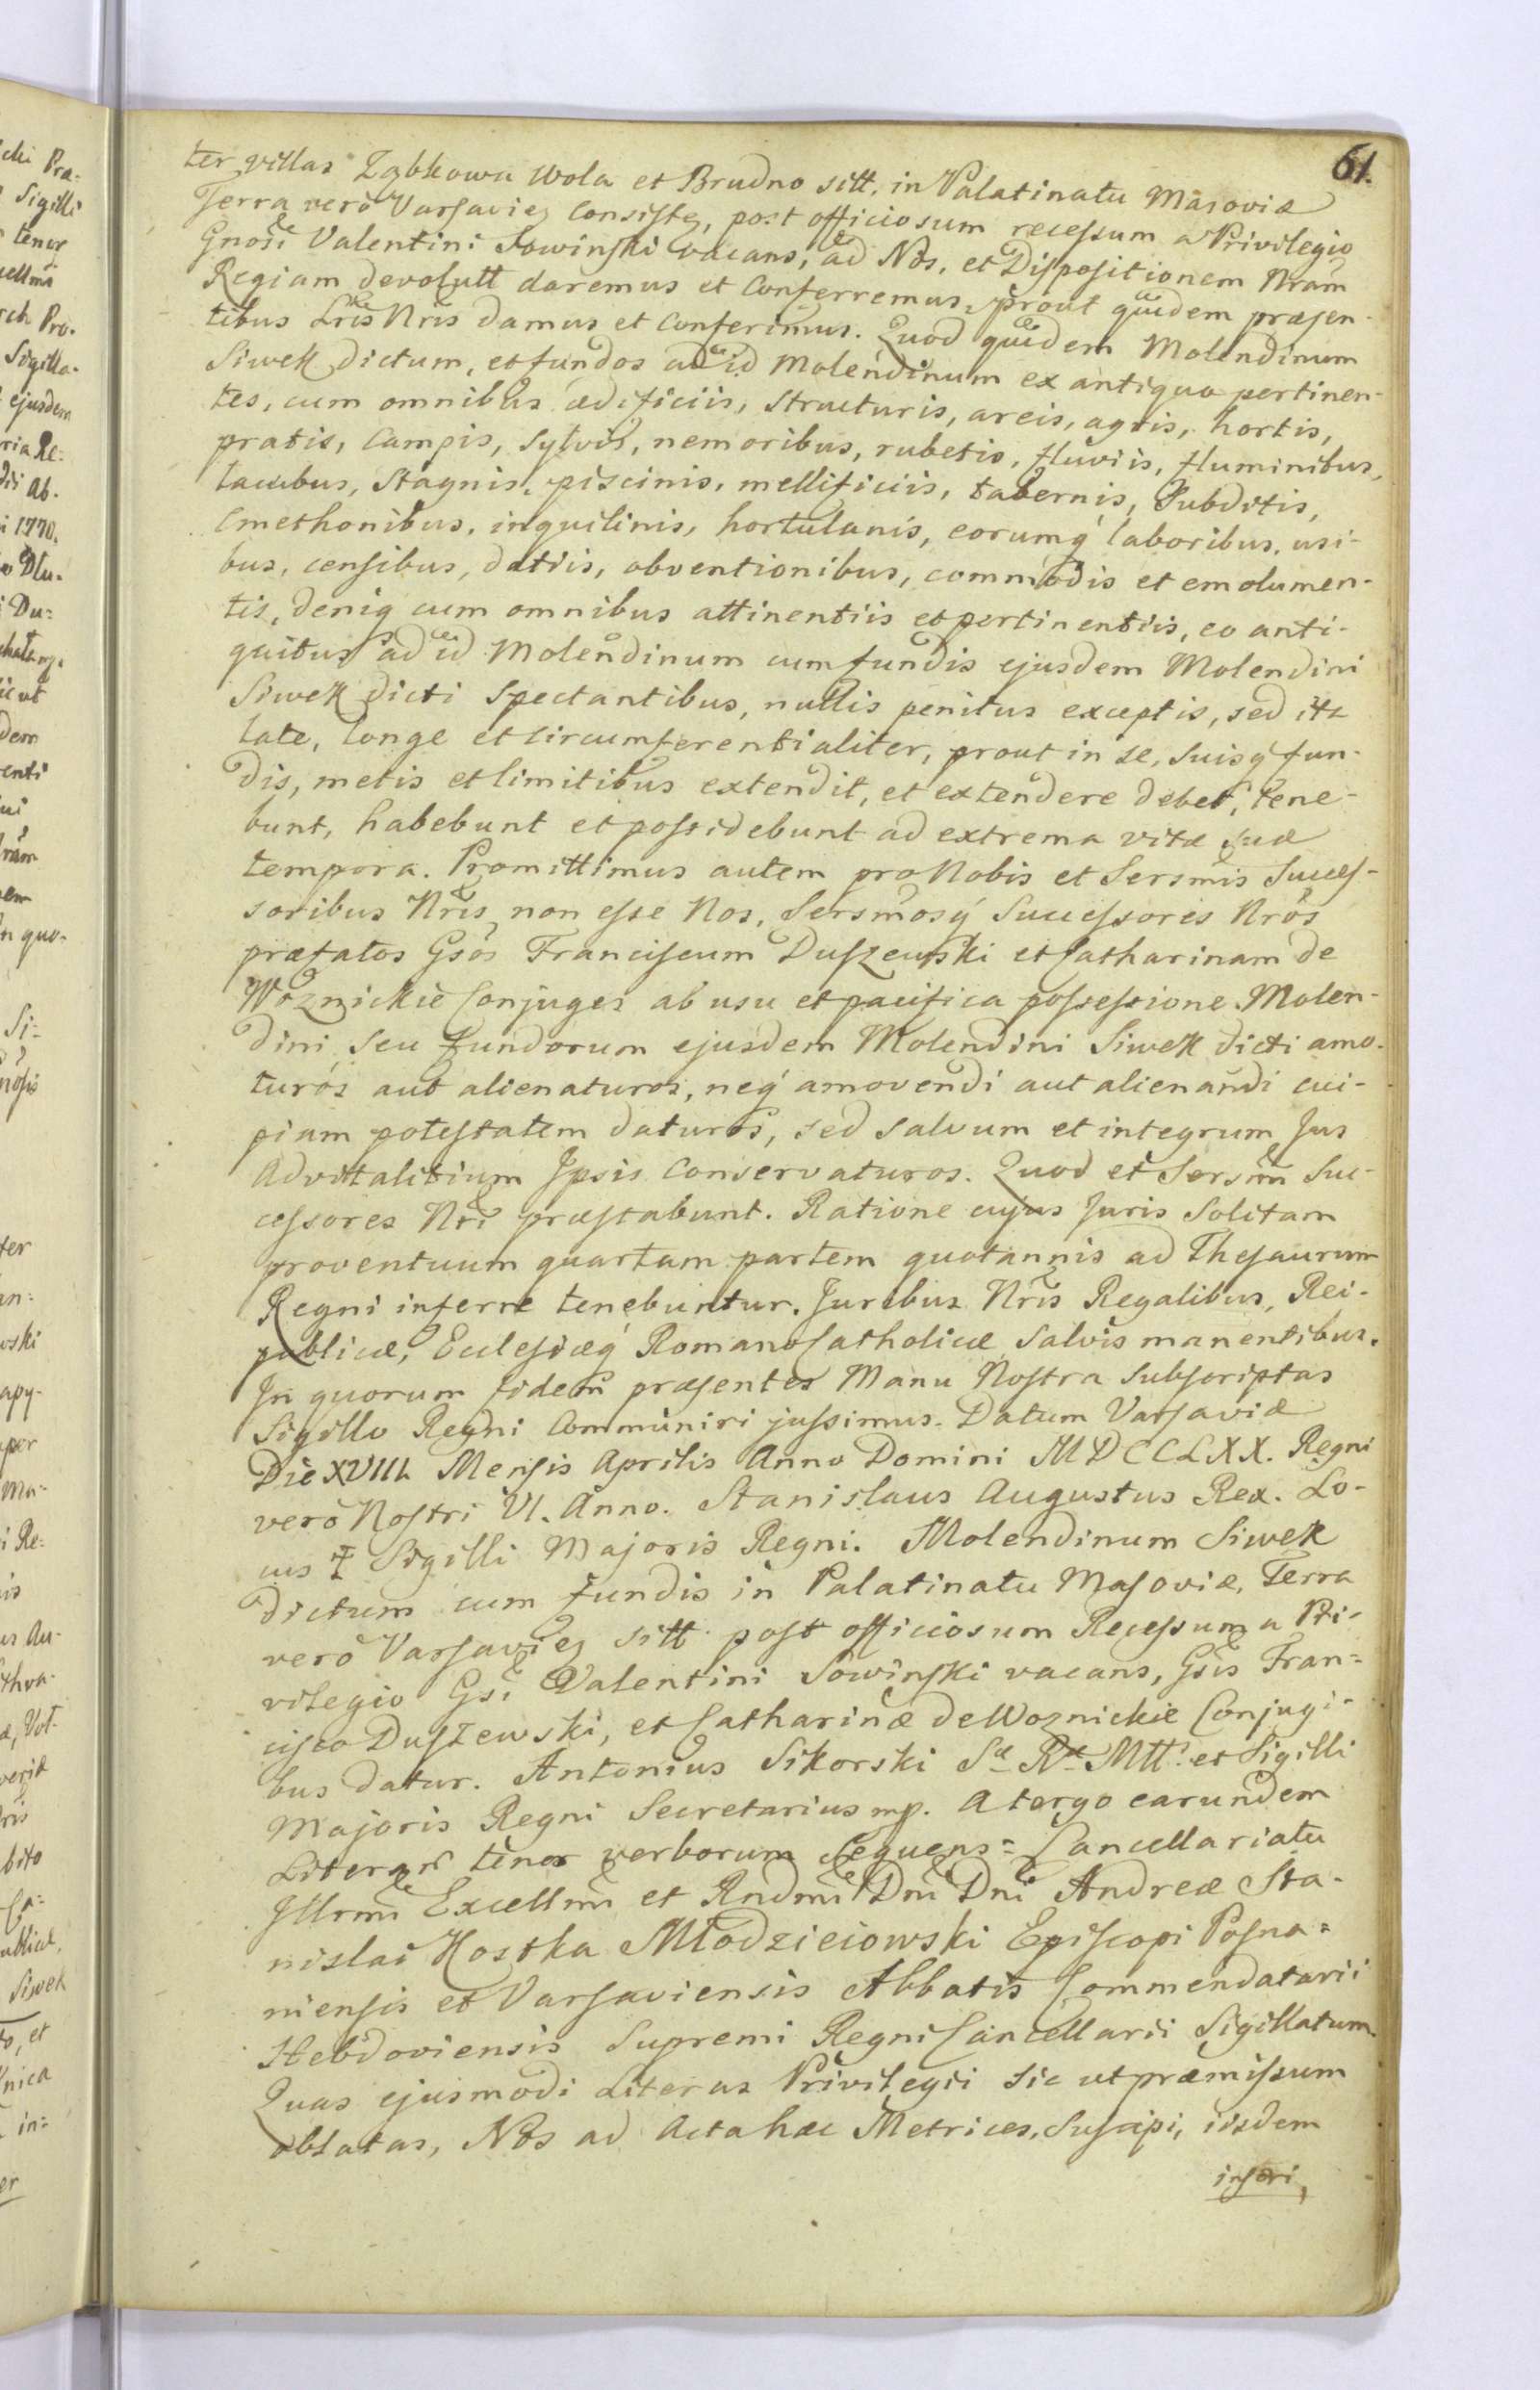 61.
ter villas Ząbkowa Wola et Brudno sitt. in Palatinatu Masoviæ
Terra verò Varsavieñ Consisteñ, post officiosum recessum a Privilegio
Gnosi Valentini Sowinski vacans, ad Nos, et Dispositionem Nram
Regiam devolutt daremus et Conferremus, prout quidem præsen-
tibus Lris Nris damus et Conferimus. Quod quidem Molendinum
Siwek dictum, et fundos ad id Molendinum ex antiquo pertinen-
tes, cum omnibus ædificiis, structuris, areis, agris, hortis,
pratis, Campis, sylvis, nemoribus, rubetis, fluviis, fluminibus,
lacubus, Stagnis, piscinis, mellificiis, tabernis, Subditis,
Cmethonibus, inquilinis, hortulanis, eorumq́ laboribus, usi-
bus, censibus, datiis, obventionibus, commodis et emolumen-
tis, deniq cum omnibus attinentiis et pertinentiis, eo anti-
quitus ad id Molendinum cum fundis ejusdem Molendini
Siwek dicti Spectantibus, nullis penitus exceptis, sed ita
late, longe et circumferentialiter, prout in se, suisq́ fun-
dis, metis et limitibus extendit, et extendere debet, tene-
bunt, habebunt et possidebunt ad extrema vitæ suæ
tempora. Promittimus autem pro Nobis et Sersmis Succes-
soribus Nris non esse Nos, Sersmosq́ Successores Nros
præfatos Gsos Franciscum Duszewski et Catharinam de
Woznickie Conjuges ab usu et pacifica possessione Molen-
dini seu fundorum ejusdem Molendini Siwek dicti amo-
turos aut alienaturos, neq́ amovendi aut alienandi cui-
piam potestatem daturos, sed salvum et integrum Jus
Advitalitium Ipsis Conservaturos. Quod et Sersmi Suc-
cessores Nri præstabunt. Ratione cujus Juris Solitam
proventuum quartam partem quotannis ad Thesaurum
Regni inferre tenebuntur. Juribus Nris Regalibus, Rei-
publicæ, Ecclesiæq́ Romano Catholicæ salvis manentibus.
In quorum fidem præsentes Manu Nostra Subscriptas
Sigillo Regni Communiri jussimus. Datum Varsaviæ
Die XVIII. Mensis Aprilis Anno Domini MDCCLXX. Regni
verò Nostri VI. Anno. Stanislaus Augustus Rex. Lo-
cus ‡ Sigilli Majoris Regni. Molendinum Siwek
dictum cum fundis in Palatinatu Masoviæ, Terra
verò Varsavieñ sitt. post officiosum Recessum a Pri-
vilegio Gsi Valentini Sowinski vacans, Gsis Fran-
cisco Duszewski, et Catharinæ de Woznickie Conjugi-
bus datur. Antonius Sikorski Sæ Ræ Mtt. et Sigilli
Majoris Regni Secretarius mp. A tergo earundem
Literar tenor verborum Sequens = Cancellariatu
Illrmi Excellmi et Rndmi Dni Dni Andreæ Sta-
nislai Kostka Młodzieiowski Episcopi Posna-
niensis et Varsaviensis Abbatis Commendatarii
Hebdoviensis Supremi Regni Cancellarii Sigillatum.
Quas ejusmodi Literas Privilegii sic ut præmissum
oblatas, Nos ad Acta hæc Metrices, Suscipi, iisdem
inseri,